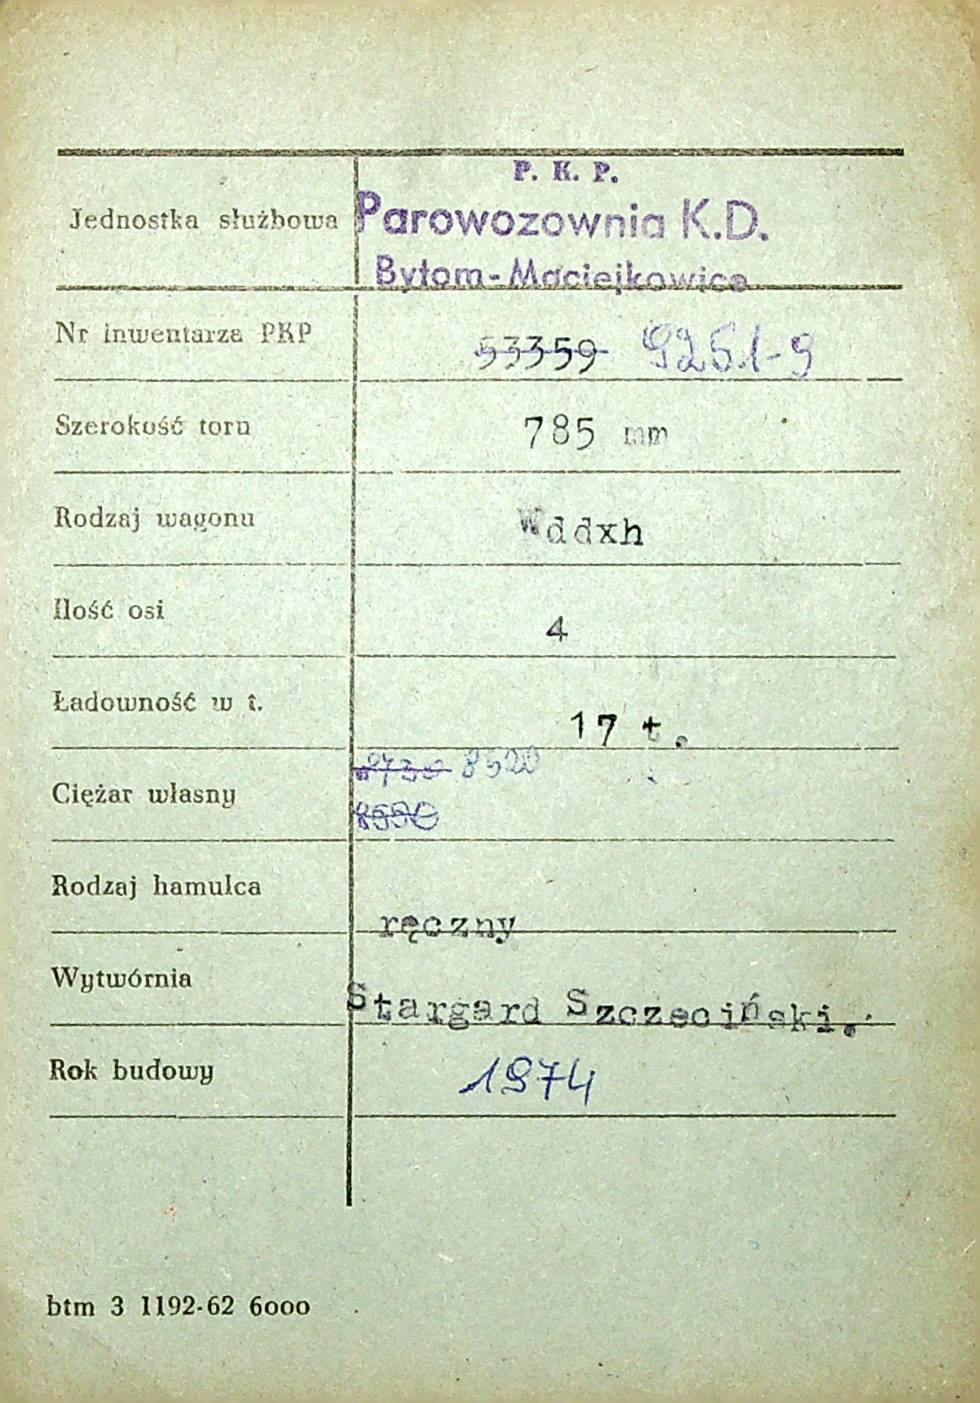 P. K. P.
Jednostka służbowa Parowozownia K.D.
Bytom-Maciejkowice
Nr inwentarza PKP 53359 9251-9
Szerokość toru 785 mm
Rodzaj wagonu Wddxh
Ilość osi 4
Ładowność w t. 17 t.
Ciężar własny 8730 8520
8550
Rodzaj hamulca ręczny
Wytwórnia Stargard Szczeciński.
Rok budowy 1974
btm 3 1192-62 6000